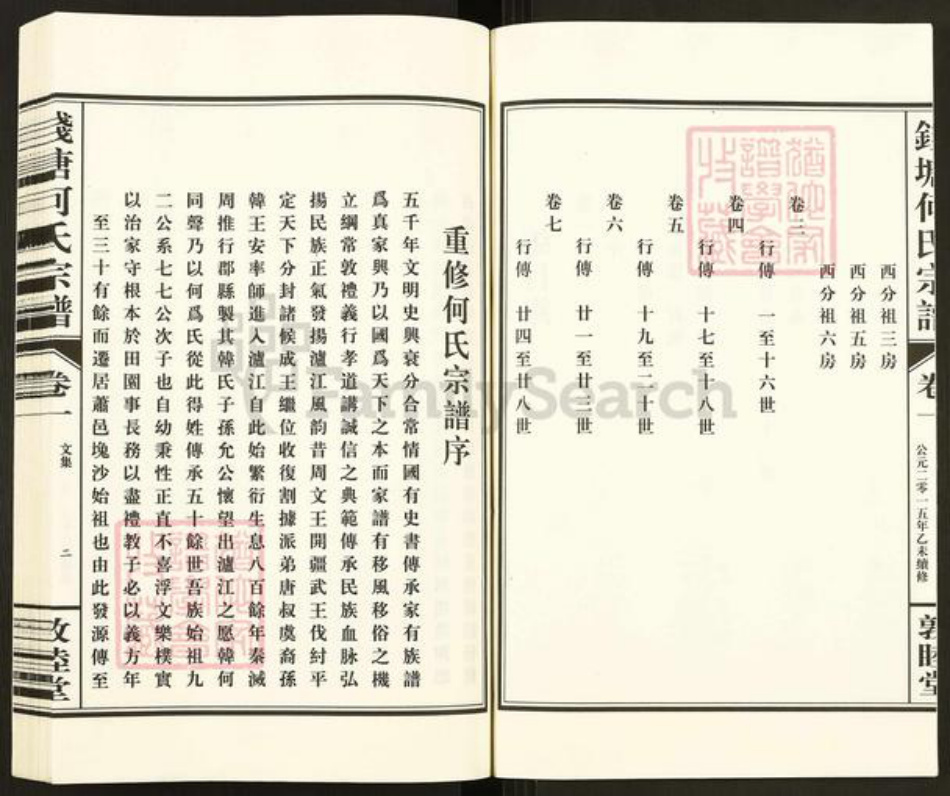 錢塘何氏宗譜
卷一
公元二零一五年乙未續修
敦睦堂
西分祖三房
西分祖五房
西分祖六房
卷三
行傳 一至十六世
卷四
行傳 十七至十八世
卷五
行傳 十九至二十世
卷六
行傳 廿一至廿三世
卷七
行傳 廿四至廿八世
重修何氏宗譜序
五千年文明史興衰分合常情國有史書傳承家有族譜
爲真家興乃以國爲天下之本而家譜有移風移俗之機
立綱常敦禮義行孝道講誠信之典範傳承民族血脉弘
揚民族正氣發揚瀘江風韵昔周文王開疆武王伐紂平
定天下分封諸候成王繼位收復割據派弟唐叔虞裔孫
韓王安率師進入瀘江自此始繁衍生息八百餘年秦滅
周推行郡縣製其韓氏子孫允公懷望出瀘江之愿韓何
同聲乃以何爲氏從此得姓傳承五十餘世吾族始祖九
二公系七七公次子也自幼秉性正直不喜浮文樂樸實
以治家守根本於田園事長務以盡禮教子必以義方年
至三十有餘而遷居蕭邑堍沙始祖也由此發源傳至
錢塘何氏宗譜
卷一
文集
二
敦睦堂
FamilySearch